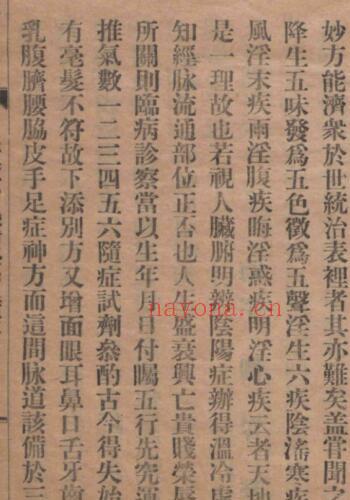 妙方能濟衆於世統治表裡者其亦難矣盖甞聞之
降生五味發爲五色徵爲五聲淫生六疾陰滛寒疾
風淫末疾雨淫腹疾晦淫惑疾明淫心疾云者天地
是一理故也若視人臟腑明辨陰陽症辦得溫冷虛
知經脉流通部位正否也人生盛衰興亡貴賤榮辱
所關則臨病診察當以生年月日付囑五行先究運
推氣數一二三四五六隨症試劑叅酌古今得失始
有毫髮不符故下添別方又增面眼耳鼻口舌牙
乳腹臍腰脇皮手足症神方而這間脉道該備於三
nayona.cn